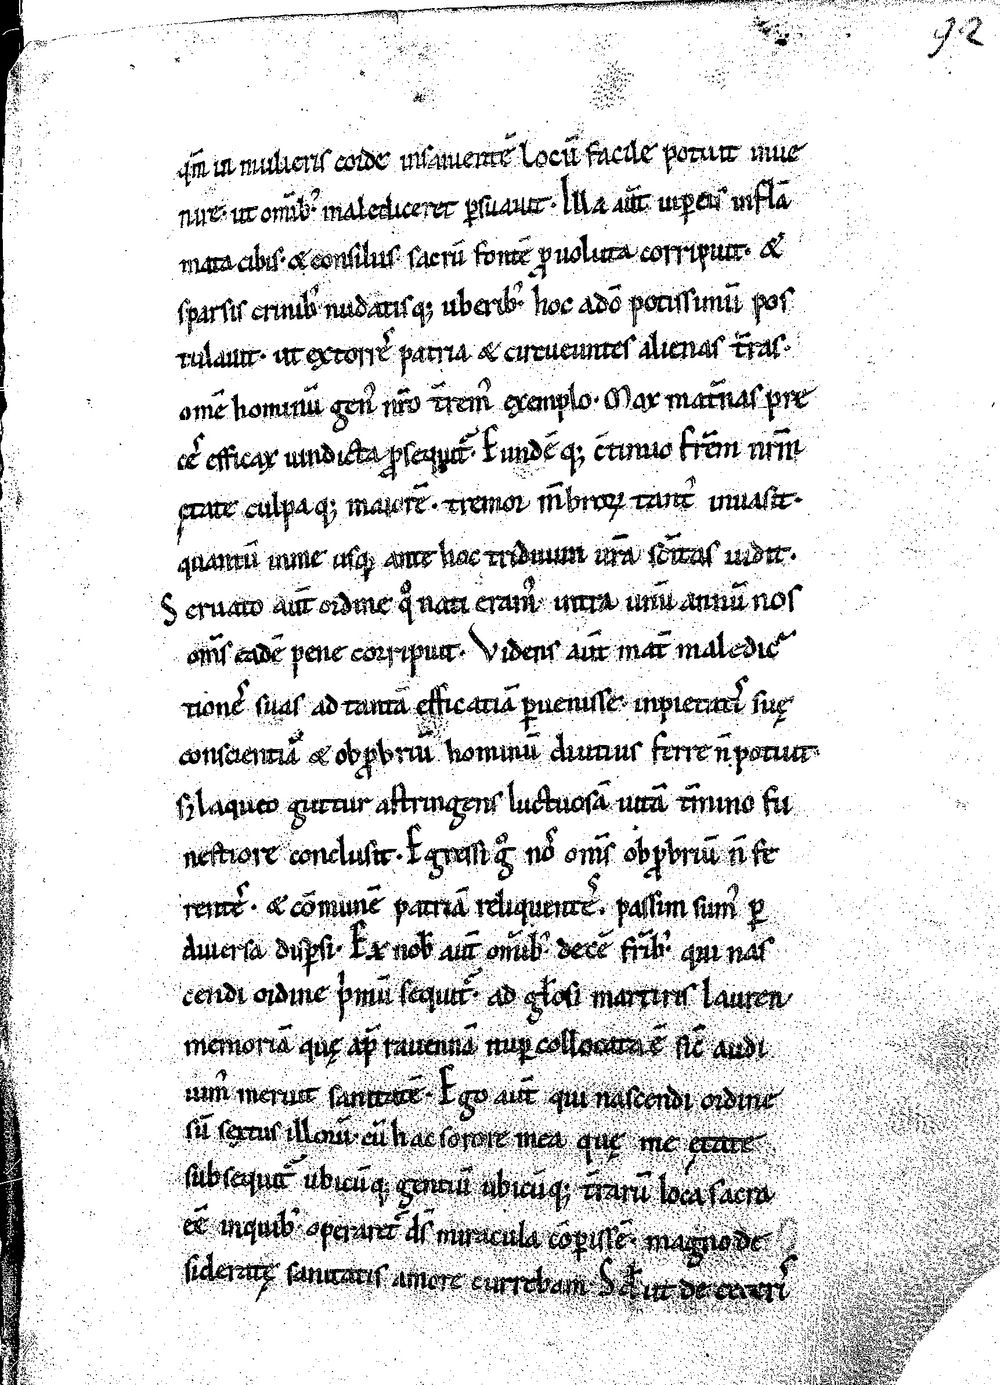 92
qm̄ in mulieris corde insanientē locū facile potuit inue
nire· ut omīb; malediceret ꝑsuauit· Illa aūt uiꝑeis inflā
mata cibis· & consiliis sacrū fontē ꝓuoluta corripuit· &
sparsis crinib; nudatisq; uberib; hoc adō potissimū pos
tulauit· ut extorres patria & circueuntes alienas tr̄as·
omē hominū gen᾽ nr̄o tr̄erem᾽ exemplo· Mox mat̄nas pre
ces efficax uindicta ꝓsequit᷑· Eundē q; c̄tinuo fr̄em nr̄m
ętate culpa q; maiorē· tremor m̄broꝝ tant᾽ inuasit·
quantū in me usq; ante hoc triduum ur̄a sc̄itas uidit·
Seruato aūt ordine qͦ nati eram᾽ intra unū annū nos
om̄s eadē pene corripuit· Videns aūt mat̄ maledic
tiones suas ad tantā efficatiā ꝑuenisse· inpietatis suę
conscientiā & obꝓbriū hominū diutius ferre n̄ potuit·
s; laqueo guttur astringens luctuosā uitā t̄mino fu
nestiore conclusit· Egressi gͦ nos om̄s obꝓbriū n̄ fe
rentes· & cōmunē patriā reliquentes· passim sum᾽ ꝑ
diuersa disꝑsi· Ex nob̄ aūt omīb; decē fr̄ib; qui nas
cendi ordine p̄mū sequit᷑· ad gl̄osi martiris lauren
memoriā quę ap̄ rauennā nuꝑ collocata ē sic̄ audi
uim᾽ meruit sanitatē· Ego aūt qui nascendi ordine
sū sextus illorū· cū hac sorore mea quę me ętate
subsequit᷑ ubicūq; gentiū ubicūq; tr̄arū loca sacra
eē̄ inquib; operaret᷑ d̄s miracula cōꝑissē· magno de
sideratę sanitatis amore currebam· S& ut de ceteris